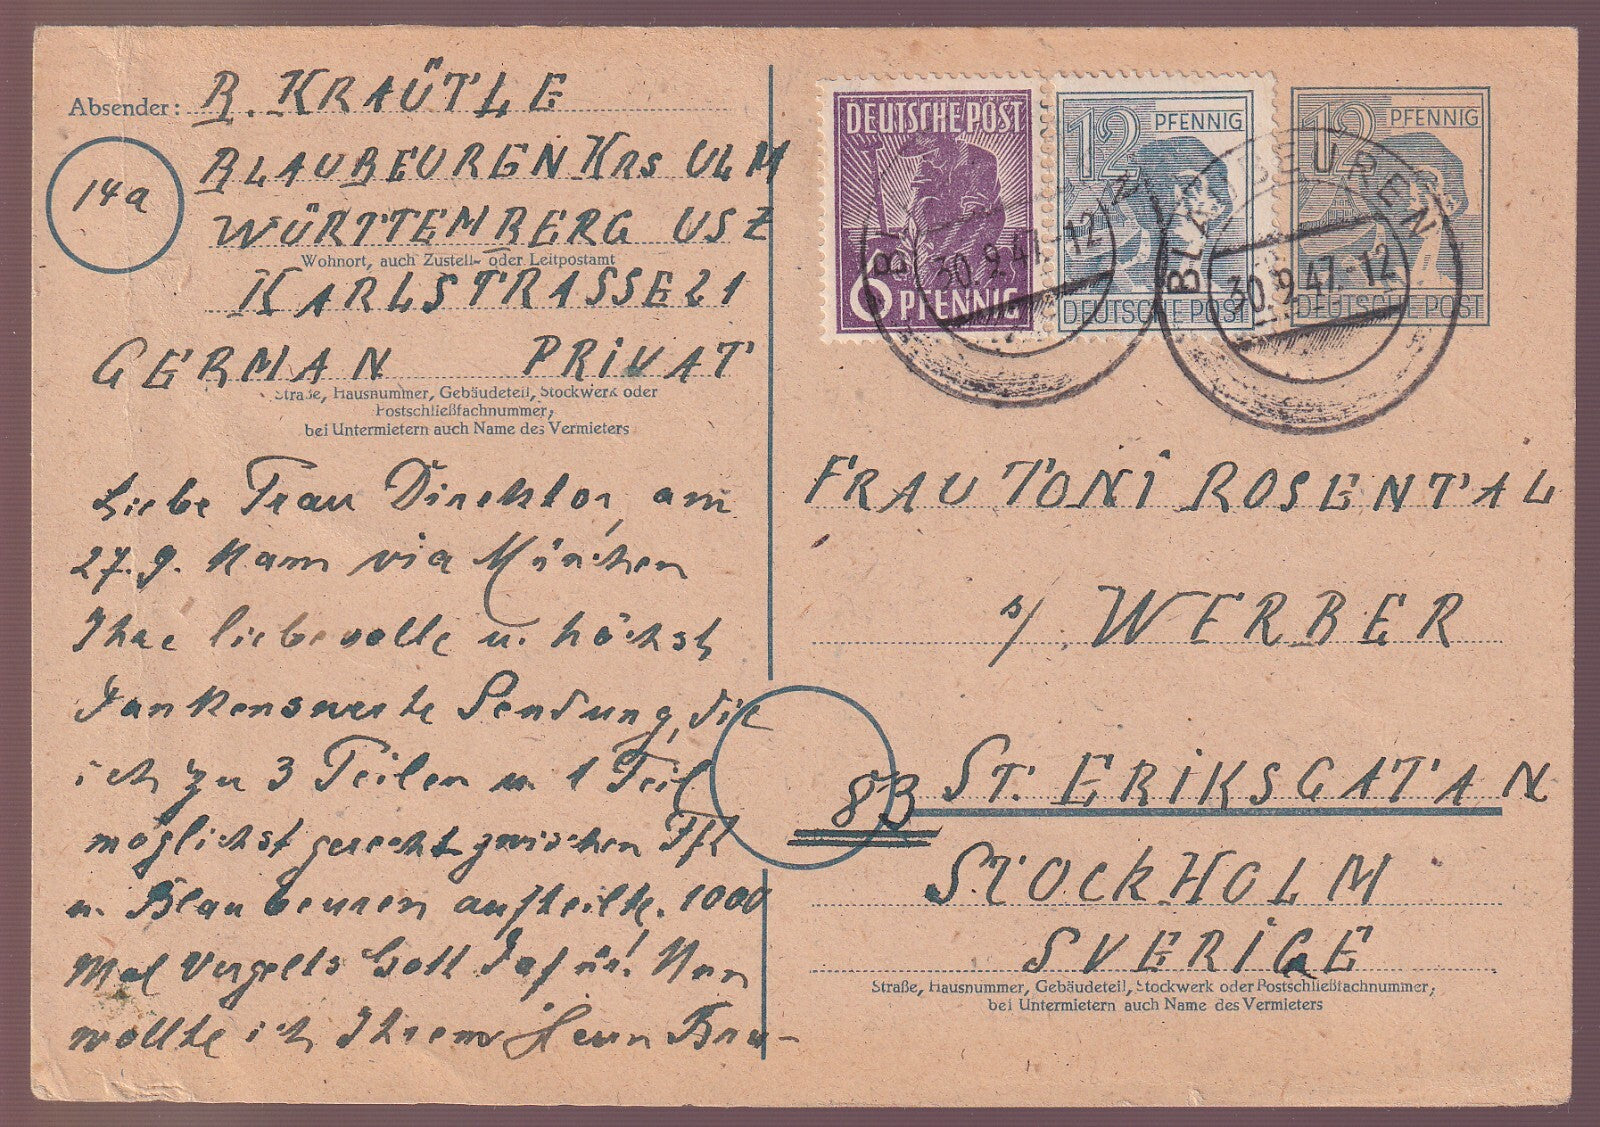 Absender: R. KRAÜTLE
14a
BLAUBEURGN KRS ULM
WÜRTTEMBERG USZ
Wohnort, auch Zustell- oder Leitpostamt
KARLSTRASSE 21
GERMAN PRIVAT
Straße, Hausnummer, Gebäudeteil, Stockwerk oder
Postschließfachnummer,
bei Untermietern auch Name des Vermieters
Liebe Frau Direktor, am
27. 9. kam via München
Ihre liebevolle u. höchst
dankenswerte Sendung, die
ich zu 3 Teilen u. 1 Teil
möglichst gerecht zwischen Ffl
u. Blaubeuren aufteilte. 1000
Mal Vergelts Gott dafür! Nun
wollte ich Ihrem Herrn Bru-
DEUTSCHE POST
6 PFENNIG
12 PFENNIG
DEUTSCHE POST
12 PFENNIG
DEUTSCHE POST
30.9.47.-12
BLAUBEUREN
30.9.47.-12
FRAU TONI ROSENTAL
s/. WERBER
83 ST. ERIKSGATAN
STOCKHOLM
SVERIGE
Straße, Hausnummer, Gebäudeteil, Stockwerk oder Postschließfachnummer,
bei Untermietern auch Name des Vermieters